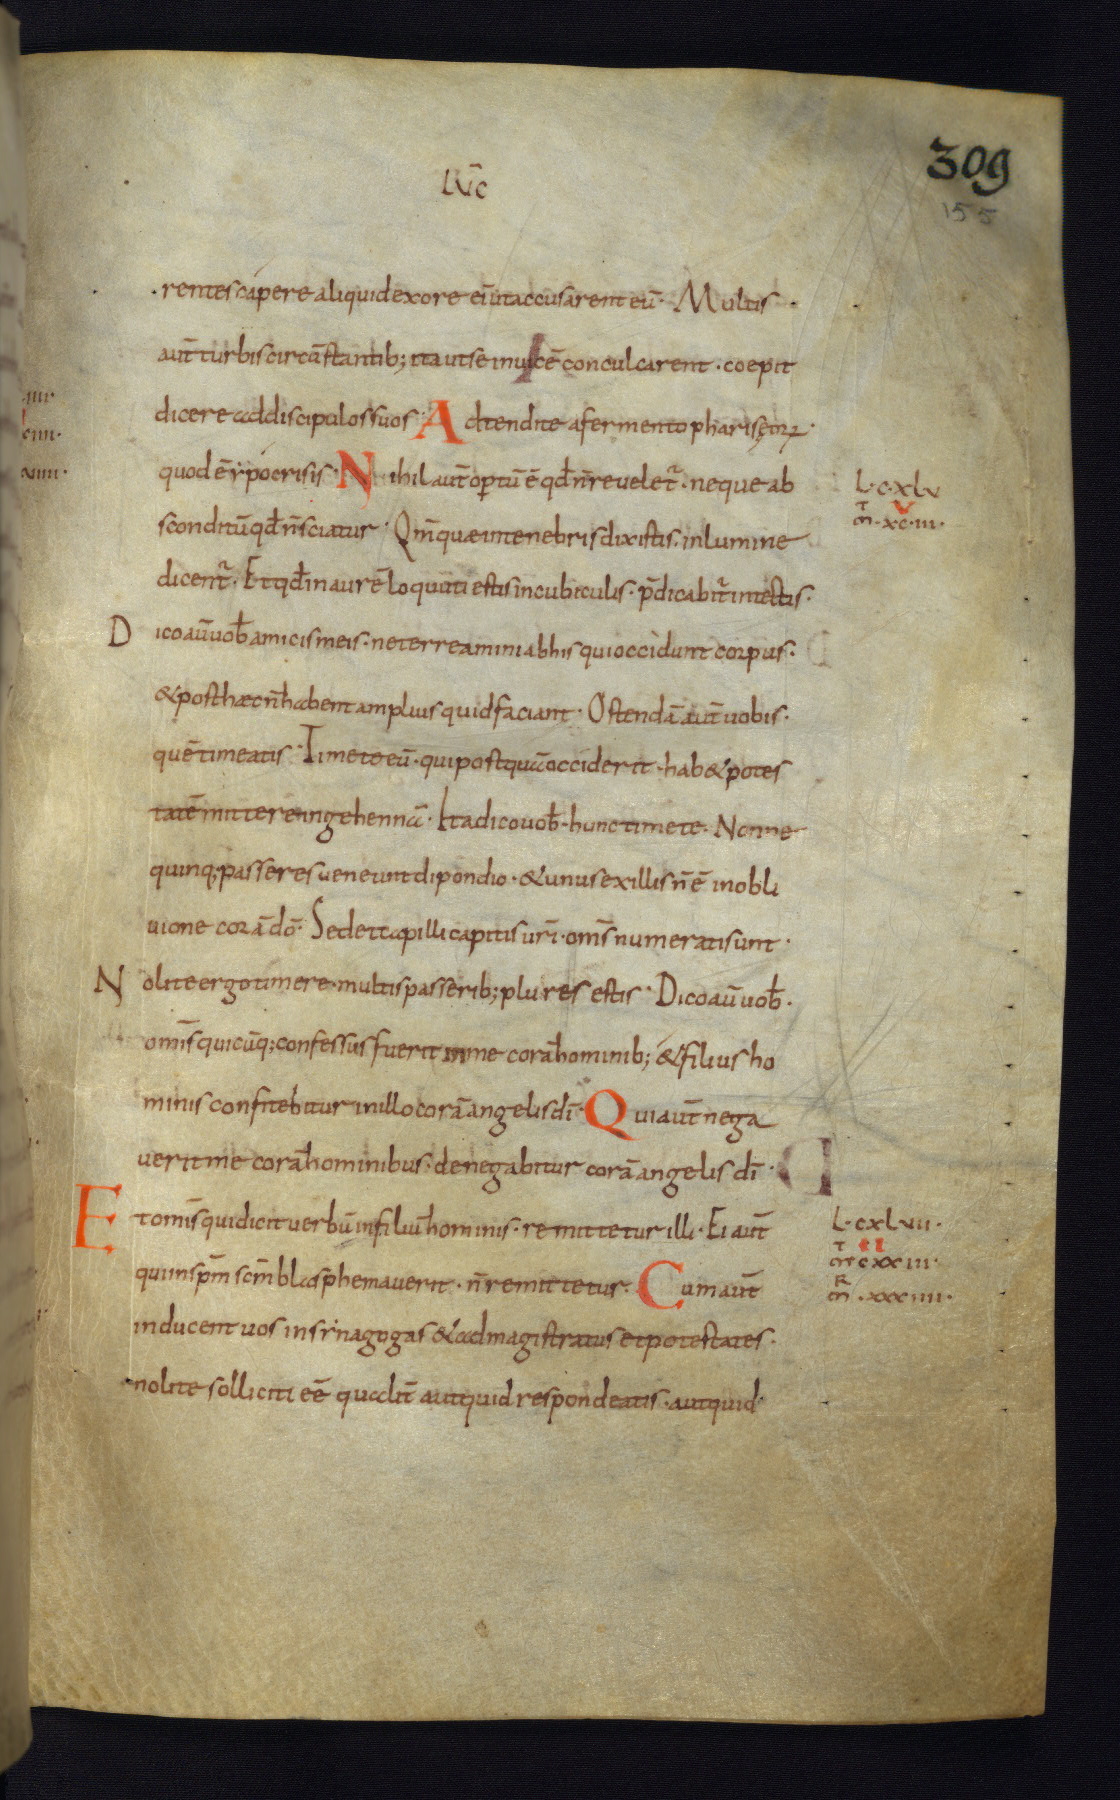 LUC̄
309
155
rentes capere aliquid ex ore ei᷒ ut accusarent eū · Multis
aut̄ turbis circū̄stantib; ita ut se invicē conculcarent · coepit
dicere ad discipulos suos · Adtendite a fermento pharisęoꝝ ·
quod ē ypocrisis · Nihil aut̄ optū ē qd̄ n̄ revelet᷑ · neque ab
sconditū qd̄ n̄ sciatur · Qm̄ quae in tenebris dixistis · in lumine
dicent᷑ · Et qd̄ in aurē locuti estis in cubiculis · p̄dicabit᷑ in tectis ·
Dico aū vob̄ amicis meis · ne terreamini ab his qui occidunt corpus ·
& post haec n̄ habent amplius quid faciant · Ostendā aut̄ vobis ·
quē timeatis · Timete eū · qui postquā occiderit · hab& potes
tatē mittere in gehennā · Ita dico vob̄ · hunc timete · Nonne
quinq; passeres veneunt dipondio · & unus ex illis n̄ ē in obli
vione corā dō · Sed et capilli capitis vr̄i · om̄s numerati sunt ·
Nolite ergo timere · multis passerib; plures estis · Dico aū vob̄ ·
om̄s quicūq; confessus fuerit in me corā hominib; & filius ho
minis confitebitur in illo corā angelis dī · Qui aut̄ nega
verit me corā hominibus · denegabitur corā angelis dī ·
Et om̄s qui dicit verbū in filiū hominis · remittetur illi · Ei aut̄
qui in sp̄m sc̄m blasphemaverit · n̄ remittetur · Cum aut̄
inducent vos in synagogas & ad magistratus et potestates ·
nolite solliciti eē qualit̄ aut quid respondeatis · aut quid
L · c · xlv
m̄ · xc · iii ·
L · cxlvii ·
m̄ cxxiii ·
m̄ · xxxiiii ·